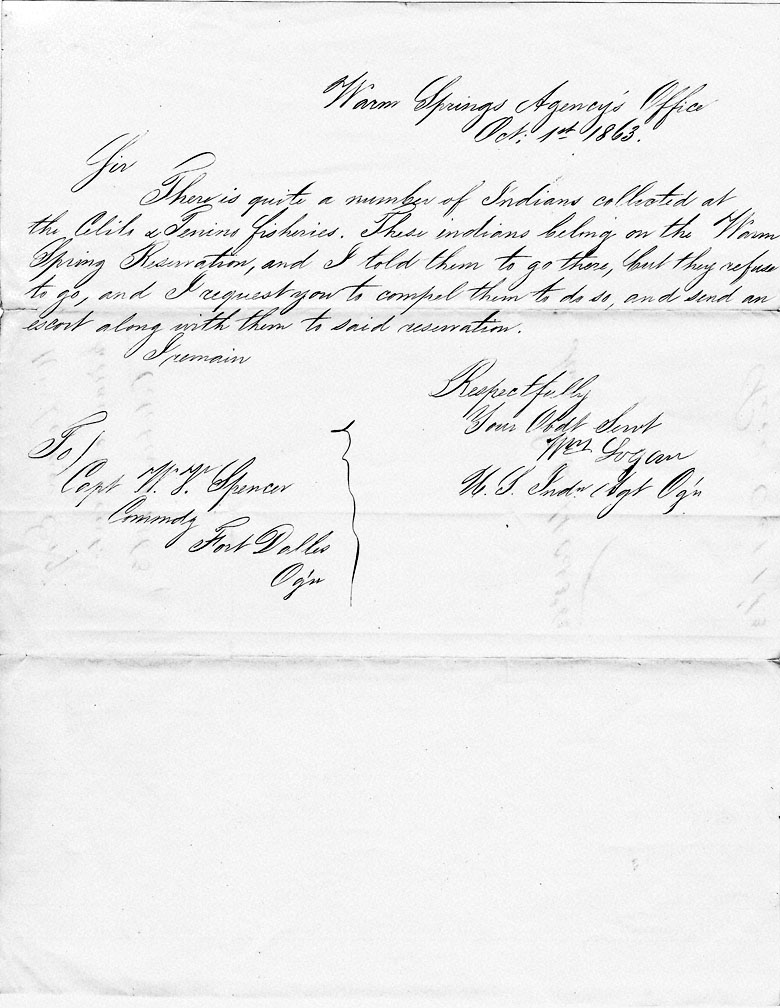 Warm Springs Agency's Office
Oct. 1st 1863.
Sir
There is quite a number of Indians collected at
the Celilo & Tenino fisheries. These indians belong on the Warm
Spring Reservation, and I told them to go there, but they refuse
to go, and I request you to compel them to do so, and send an
escort along with them to said reservation.
I remain
Respectfully
Your Obdt Servt
Wm Logan
U. S. Indn Agt Ogn
To
Capt W. V. Spencer
Commdg
Fort Dalles
Ogn